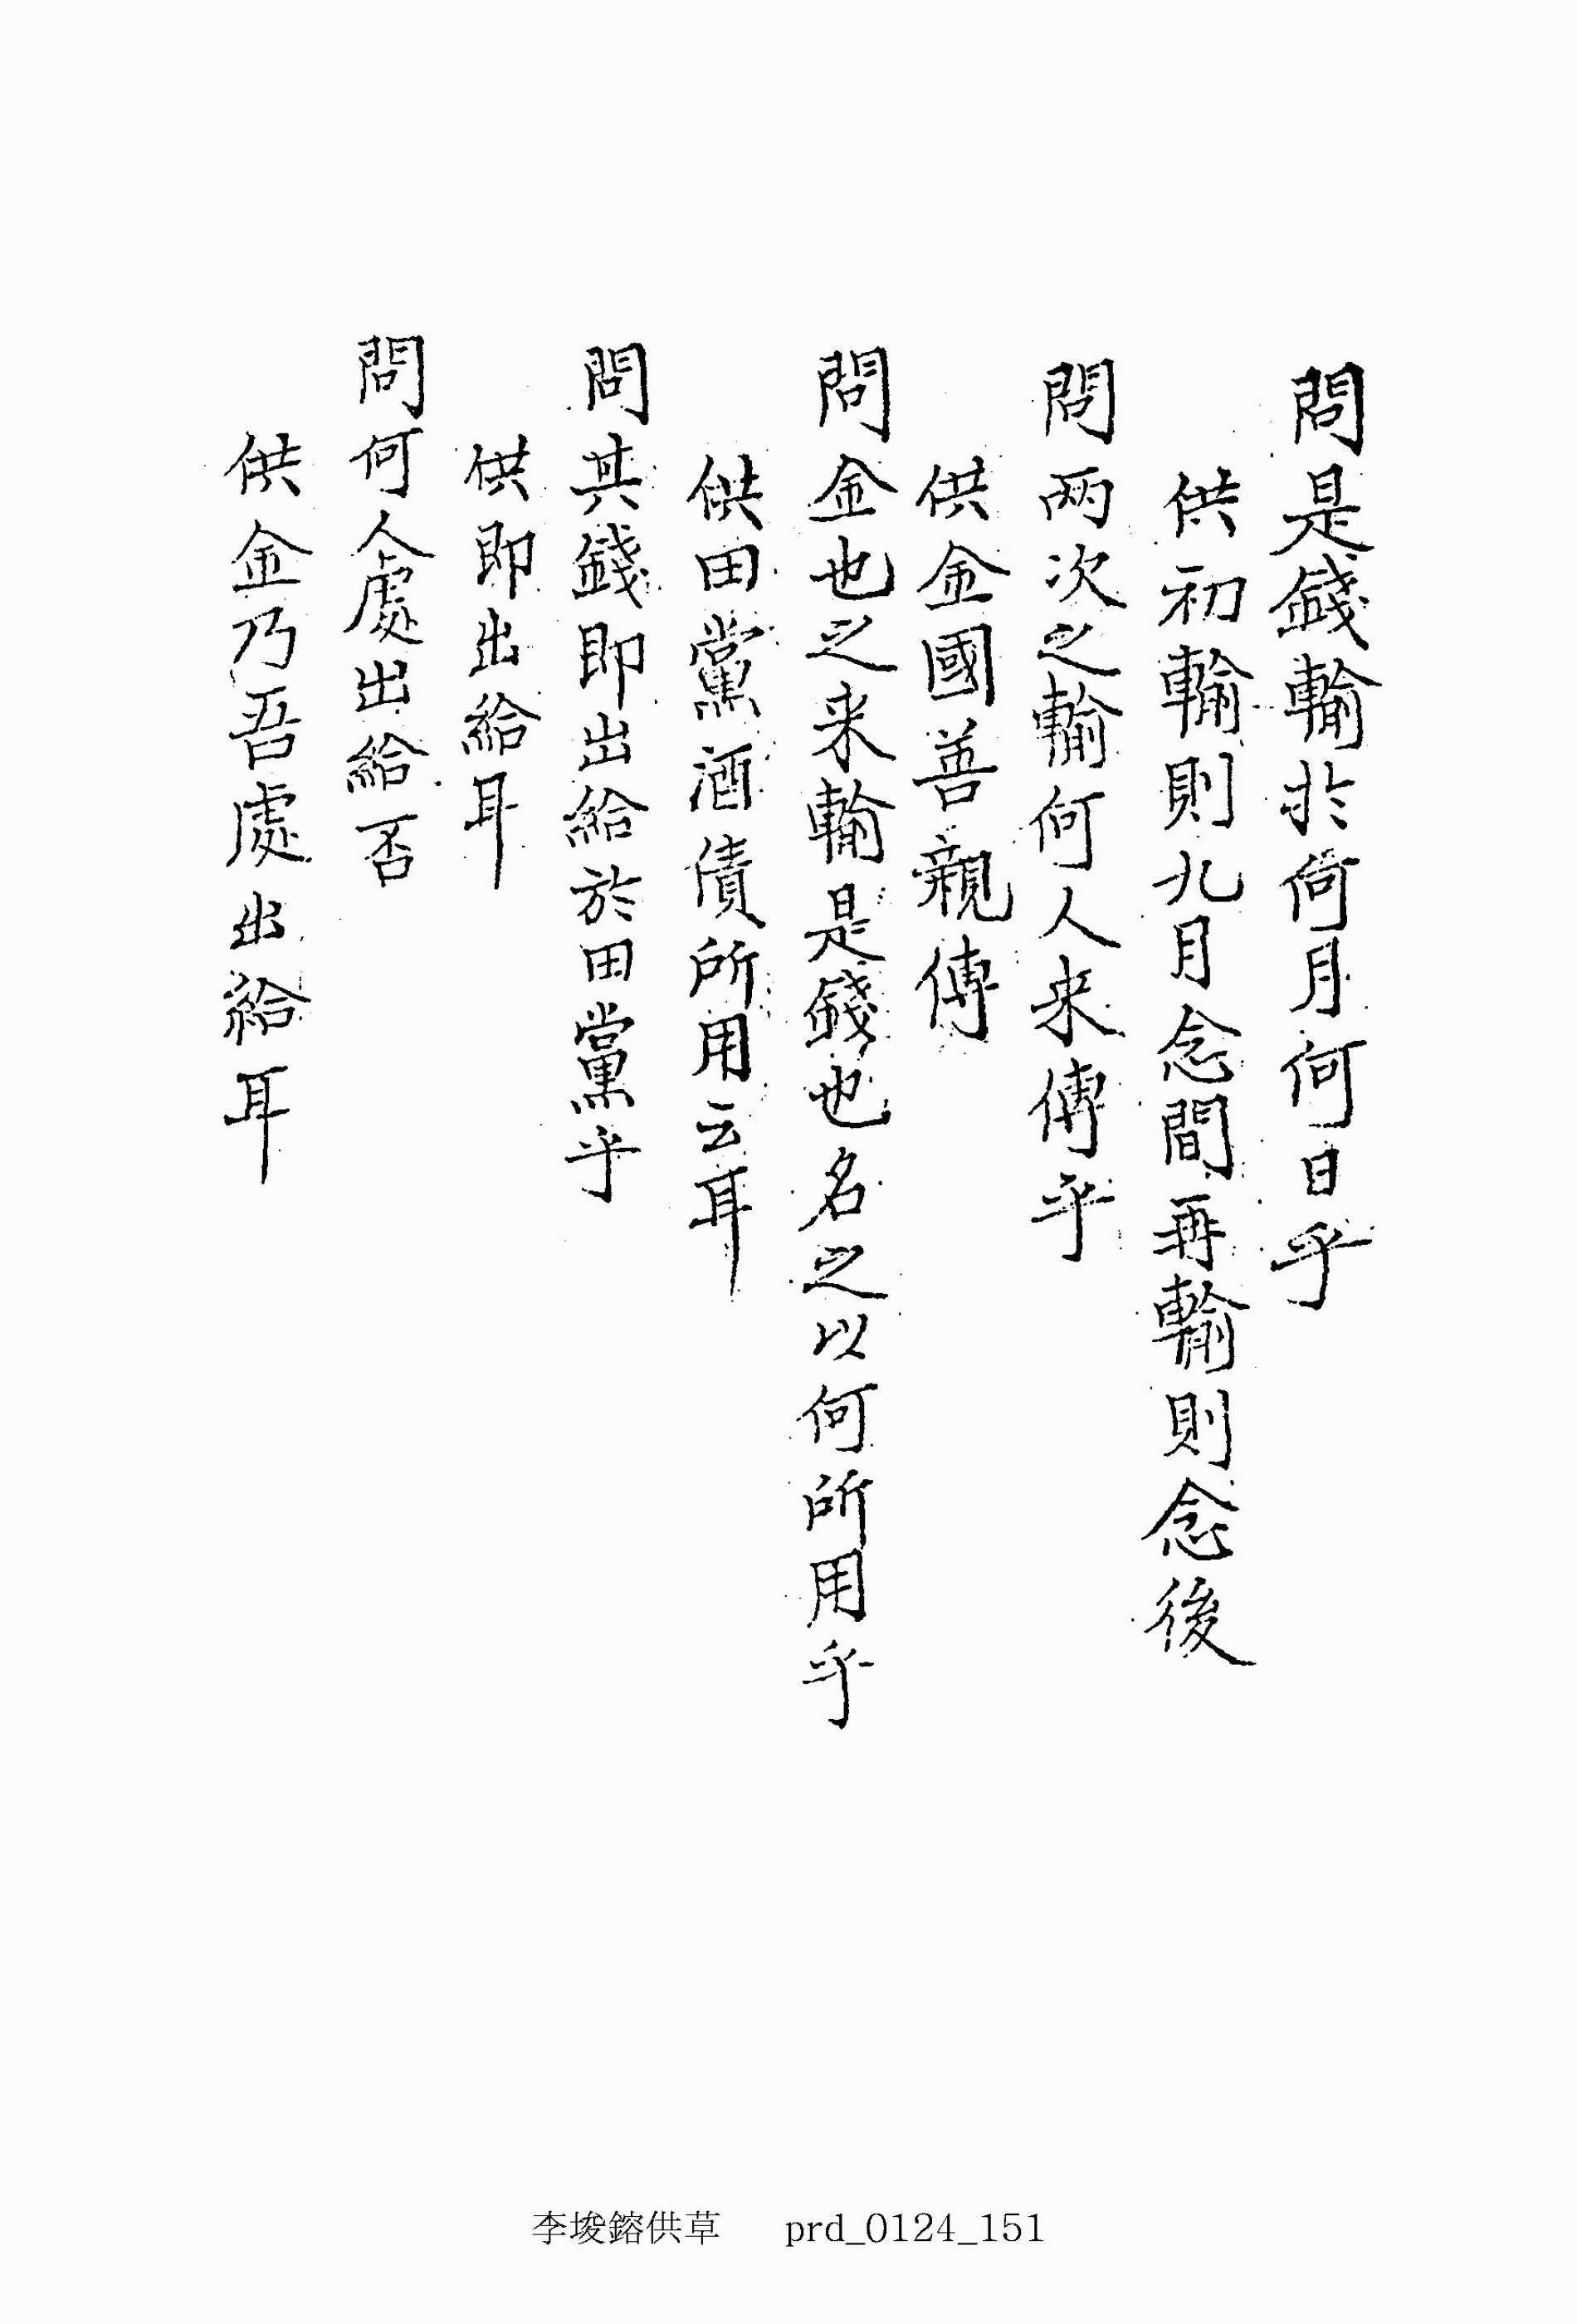 問是錢輸於何月何日乎
供初輸則九月念間再輸則念後
問兩次之輸何人来傳乎
供金國善親傳
問金也之来輸是錢也名之以何所用乎
供田黨酒債所用云耳
問其錢即出給於田黨乎
供即出給耳
問何人處出給否
供金乃吾處出給耳
李埈鎔供草 prd_0124_151